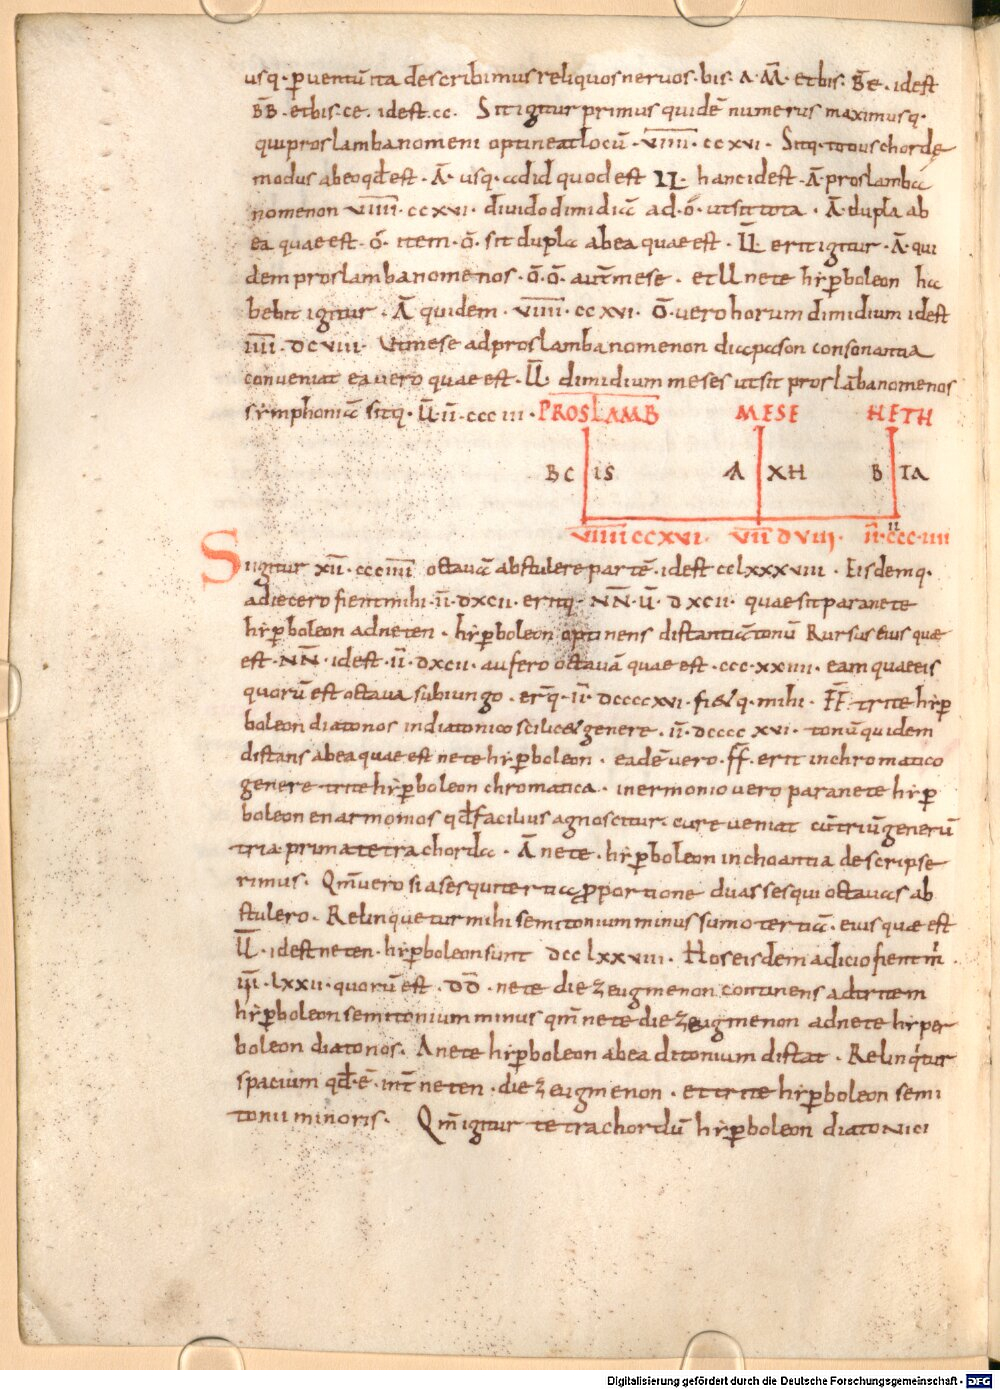 usq· ꝑuentū ita describimus reliquos neruos· bis· A· M̄· et bis· B̄e· idest
B̄B̄· et bis· ce· idest· cc· Sit igitur primus quidē numerus maximusq·
qui proslambanomeni optineat locū· V̅I̅I̅I̅I̅· CCXVI· Sitq· totius chordę
modus ab eo qđ est· Ā· usq· ad id quod est LL· hanc idest· Ā· proslamba
nomenon V̅I̅I̅I̅I̅· CCXVI· diuido dimidiā ad· ō· ut sit tota· Ā· dupla ab
ea quae est· ō· item· ō· sit dupla ab ea quae est· L̄L̄ erit igitur· Ā· qui
dem proslambanomenos· ō· ō· aut̄ mese· et LL nete hyꝑboleon ha
bebit igitur· Ā quidem· V̅I̅I̅I̅I̅· CCXVI· ō· uero horum dimidium idest
I̅I̅I̅I̅· DCVIII· Ut mese ad proslambanomenon diapason consonantia
conueniat ea uero quae est· L̄L̄ dimidium meses ut sit proslābanomenos
symphonia sitq· I̅I̅· CCCIII·
PROSLAMB MESE HETH
BC IS A XH B IA
V̅I̅I̅I̅I̅ CCXVI· V̅I̅I̅ DVIII· I̅I̅· CCC·IIII
Si igitur XII· CCCIIII octauā abstulere partē· idest CCLXXXVIII· Eisdemq·
adiecero fient mihi· I̅I̅· DXCII· eritq· N̄N̄· I̅I̅· DXCII· quae sit paranete
hyꝑboleon ad neten· hyꝑboleon optinens distantiā tonū Rursus eius quae
est· N̄N̄· idest· I̅I̅· DXCII· aufero octauā quae est· CCC·XXIIII· eam quae eis
quorū est octaua subiungo· er̄q· I̅I̅· DCCCCXVI· fietq· mihi· F̄F̄· trite hyꝑ
boleon diatonos in diatonico scilicet genere· I̅I̅· DCCCCXVI· tonū quidem
distans ab ea quae est nete hyꝑboleon· eadē uero· F̄F̄· erit in chromatico
genere trite hyꝑboleon chromatica· in ermonio uero paranete hyꝑ
boleon enarmonios qđ facilius agnoscitur· cur eueniat cū triū generū
tria prima tetrachorda· Ā nete· hyꝑboleon inchoantia descripse
rimus· Qm̄ uero si a sesquitertia ꝓportione duas sesqui octauas ab
stulero· Relinquetur mihi semitonium minus sumo tertiā· eius quae est
L̄L̄· idest neten· hyꝑboleon sunt DCCLXXVIII· Hos eisdem adicio fient m̄
I̅I̅I̅· LXXII· quorū est· D̄D̄· nete diezeugmenon continens ad tritem
hyꝑboleon semitonium minus qm̄ nete diezeugmenon ad nete hyper
boleon diatonos· A nete hyꝑboleon ab ea ditonium distat· Relinq̄tur
spacium qđ ē· int̄ neten· diezeugmenon· et trite hyꝑboleon semi
tonii minoris· Qm̄ igitur tetrachordū hyꝑboleon diatonici
Digitalisierung gefördert durch die Deutsche Forschungsgemeinschaft - DFG